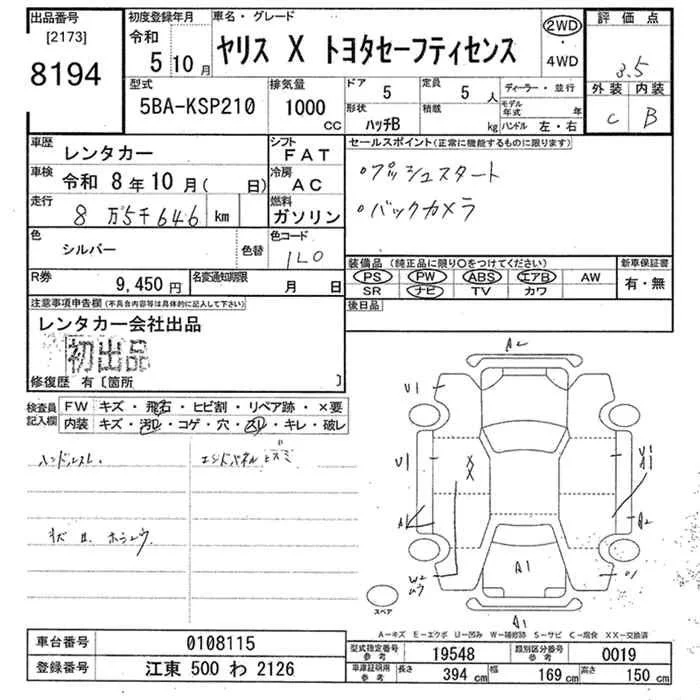 出品番号
[2173]
8194
初度登録年月
令和
5 10 月
車名・グレード
ヤリス X トヨタセーフティセンス
2WD
・
4WD
評価点
3.5
外装 内装
C B
型式
5BA-KSP210
排気量
1000
CC
ドア 5
定員 5 人
形状 ハッチB
積載 kg
ディーラー・並行
モデル年式 年
ハンドル 左・右
車歴 レンタカー
シフト FAT
車検 令和 8 年 10 月( 日)
冷房 AC
走行 8 万 5 千 646 km
燃料 ガソリン
色 シルバー 色替
色コード 1L0
R券 9,450 円
名変通知期限 月 日
セールスポイント(正常に機能するものに限ります)
・プッシュスタート
・バックカメラ
装備品(純正品に限り○をつけてください)
新車保証書
PS PW ABS エアB AW
SR ナビ TV カワ
有・無
後日品
注意事項申告欄(不具合内容等は具体的に記入して下さい)
レンタカー会社出品
初出品
修復歴 有〔箇所 〕
検査員記入欄
FW キズ・飛石・ヒビ割・リペア跡・×要
内装 キズ・汚レ・コゲ・穴・スレ・キレ・破レ
ハンドルスレ
キズ 凹
A2
U1
U1
A1
W2
XX
A1
A2
A1
A1
スペア
A-キズ E-エクボ U-凹み W-補修跡 S-サビ C-腐食 XX-交換済
車台番号 0108115
登録番号 江東 500 わ 2126
型式指定番号 参考 19548
類別区分番号 参考 0019
車庫証明用 参考 長さ 394 cm 幅 169 cm 高さ 150 cm